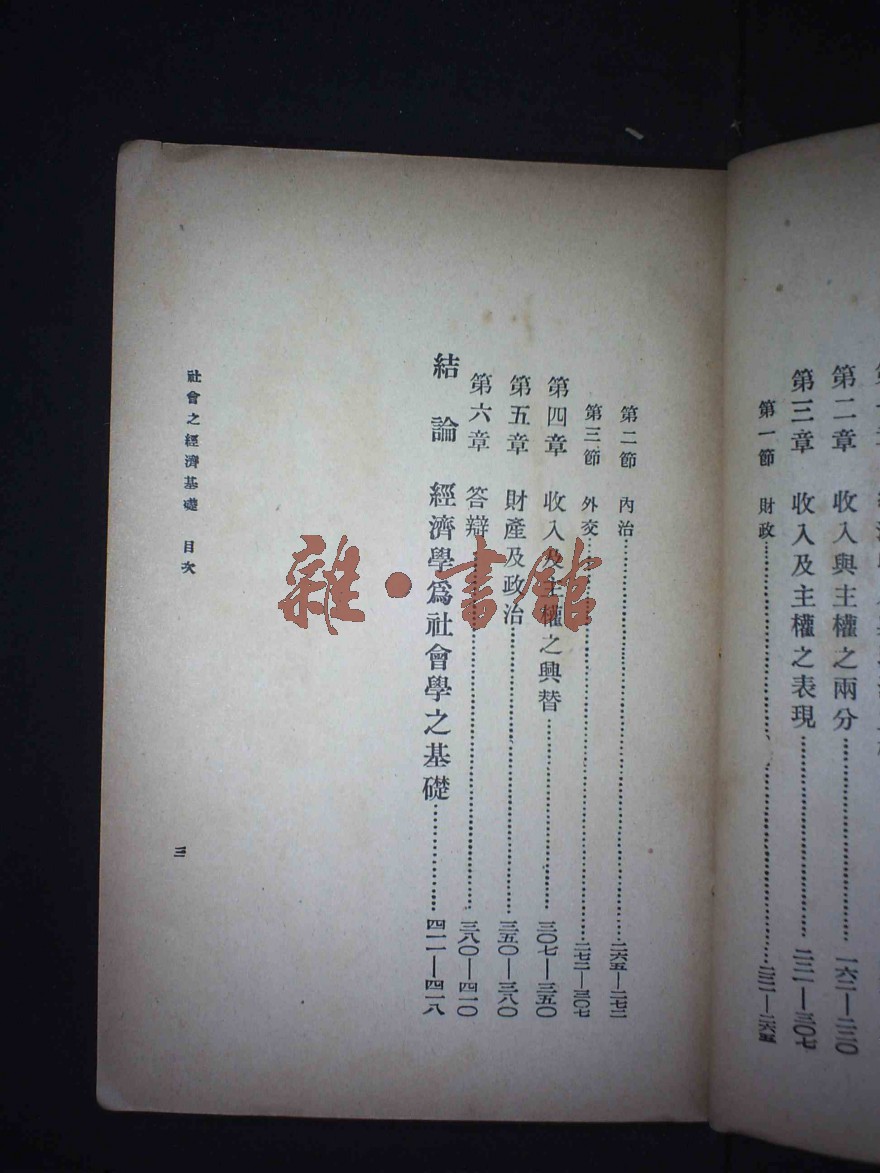 第二章 收入與主權之兩分⋯⋯一六二—二二〇
第三章 收入及主權之表現⋯⋯二二一—三〇七
第一節 財政⋯⋯二二一—二六五
第二節 內治⋯⋯二六五—二七二
第三節 外交⋯⋯二七二—三〇七
第四章 收入及主權之興替⋯⋯三〇七—三五〇
第五章 財產及政治⋯⋯三五〇—三八〇
第六章 答辯⋯⋯三八〇—四一〇
結論 經濟學爲社會學之基礎⋯⋯四一一—四一八
社會之經濟基礎 目次
三
雜·書館